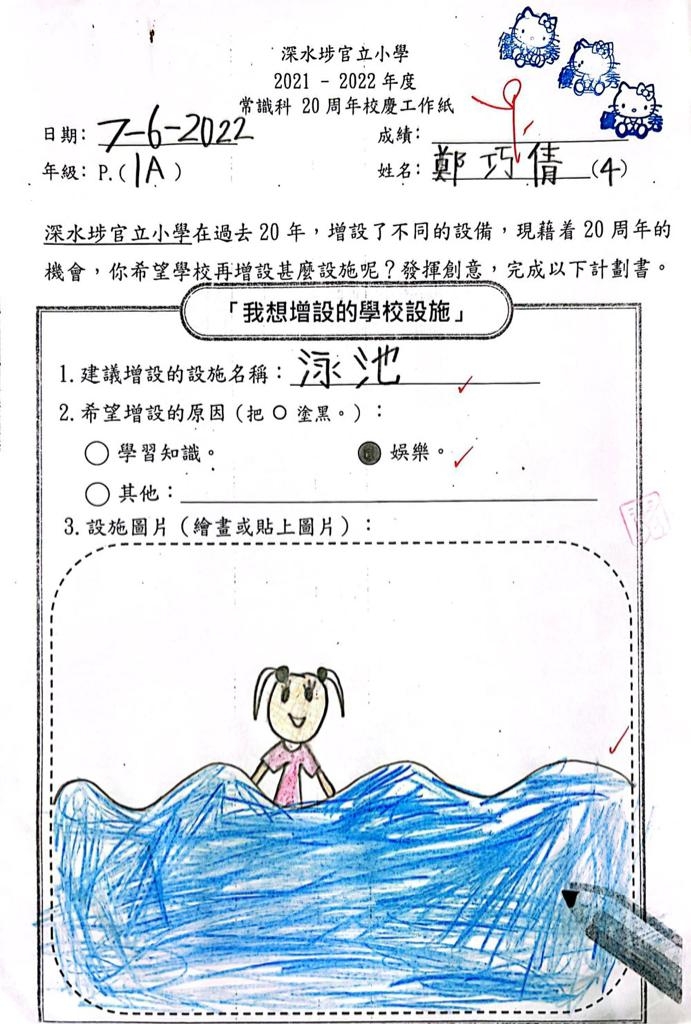 深水埗官立小學
2021 - 2022 年度
常識科 20 周年校慶工作紙
日期: 7-6-2022 成績:
年級: P.(1A) 姓名: 鄭巧倩(4)
深水埗官立小學在過去 20 年，增設了不同的設備，現藉着 20 周年的
機會，你希望學校再增設甚麼設施呢？發揮創意，完成以下計劃書。
「我想增設的學校設施」
1. 建議增設的設施名稱：泳池
2. 希望增設的原因（把 ○ 塗黑。）：
○ 學習知識。 ● 娛樂。
○ 其他：
3. 設施圖片（繪畫或貼上圖片）：
優秀
優秀
優秀
閱